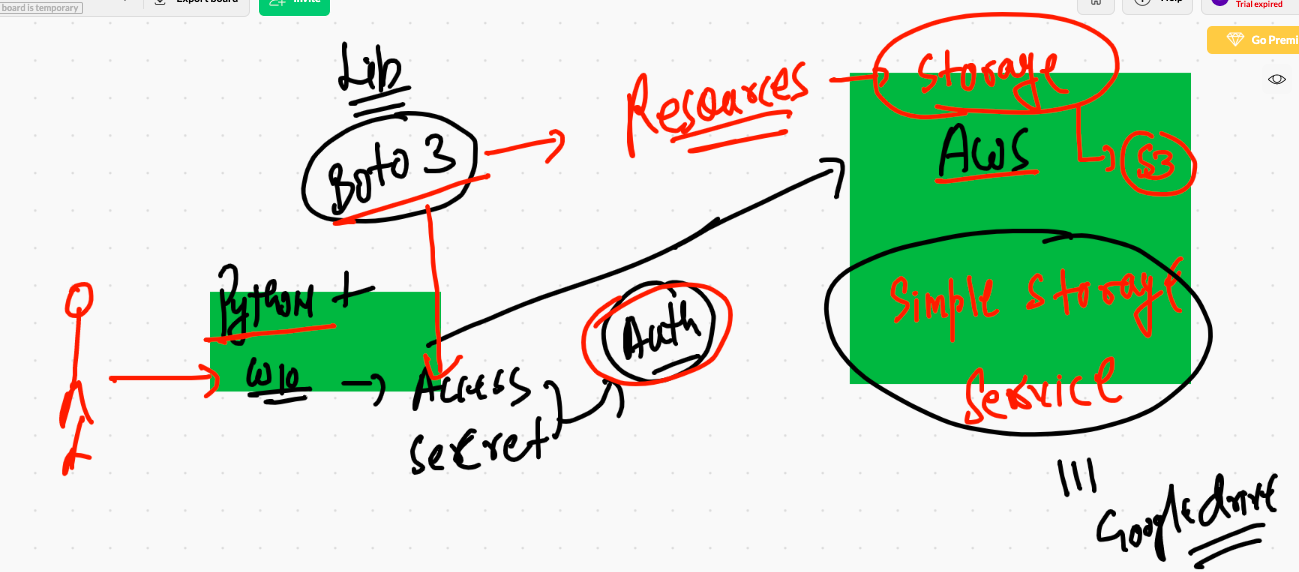 board is temporary
Export board
Invite
Help
Trial expired
Go Premi
Lib
Boto 3
Resources
Storage
AWS
S3
Python +
W10
Access
secret
Auth
Simple Storage
Service
Google drive